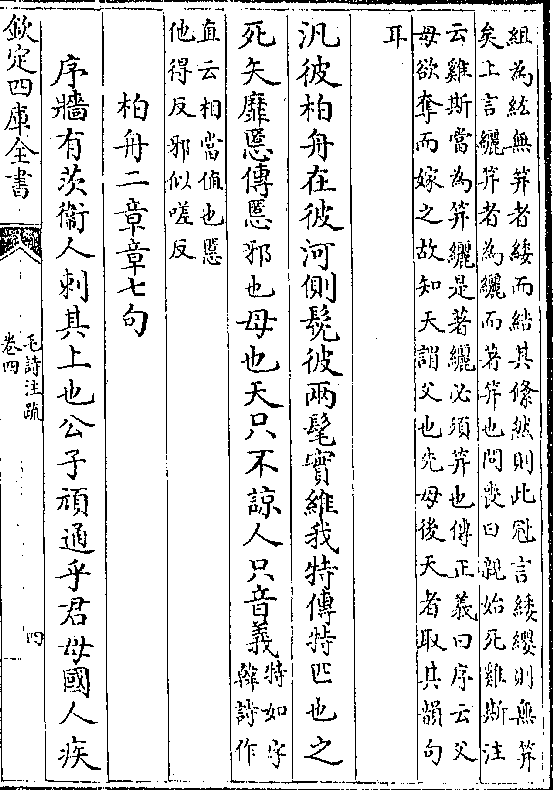 組為紘無笄者纓而結其絛然則此冠言緌纓則無笄
矣上言纚笄者為纚而著笄也問喪曰親始死雞斯注
云雞斯當為笄纚是著纚必須笄也傳正義曰序云父
母欲奪而嫁之故知天謂父也先母後天者取其韻句
耳
汎彼柏舟在彼河側髧彼兩髦實維我特傳特匹也之
死矢靡慝傳慝邪也母也天只不諒人只音義特如字
韓詩作
直云相當值也慝
他得反邪似嗟反
柏舟二章章七句
序牆有茨衞人刺其上也公子頑通乎君母國人疾
欽定四庫全書
毛詩注疏
卷四
四